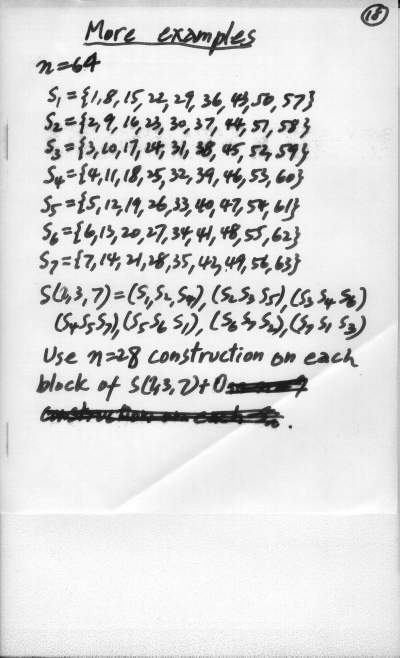 18
More examples
n=64
S₁={1,8,15,22,29,36,43,50,57}
S₂={2,9,16,23,30,37,44,51,58}
S₃={3,10,17,24,31,38,45,52,59}
S₄={4,11,18,25,32,39,46,53,60}
S₅={5,12,19,26,33,40,47,54,61}
S₆={6,13,20,27,34,41,48,55,62}
S₇={7,14,21,28,35,42,49,56,63}
S(2,3,7)=(S₁,S₂,S₄),(S₂S₃S₅),(S₃S₄S₆)
(S₄S₅S₇),(S₅S₆S₁),(S₆S₇S₂),(S₇S₁S₃)
Use n=28 construction on each
block of S(2,3,7)+0